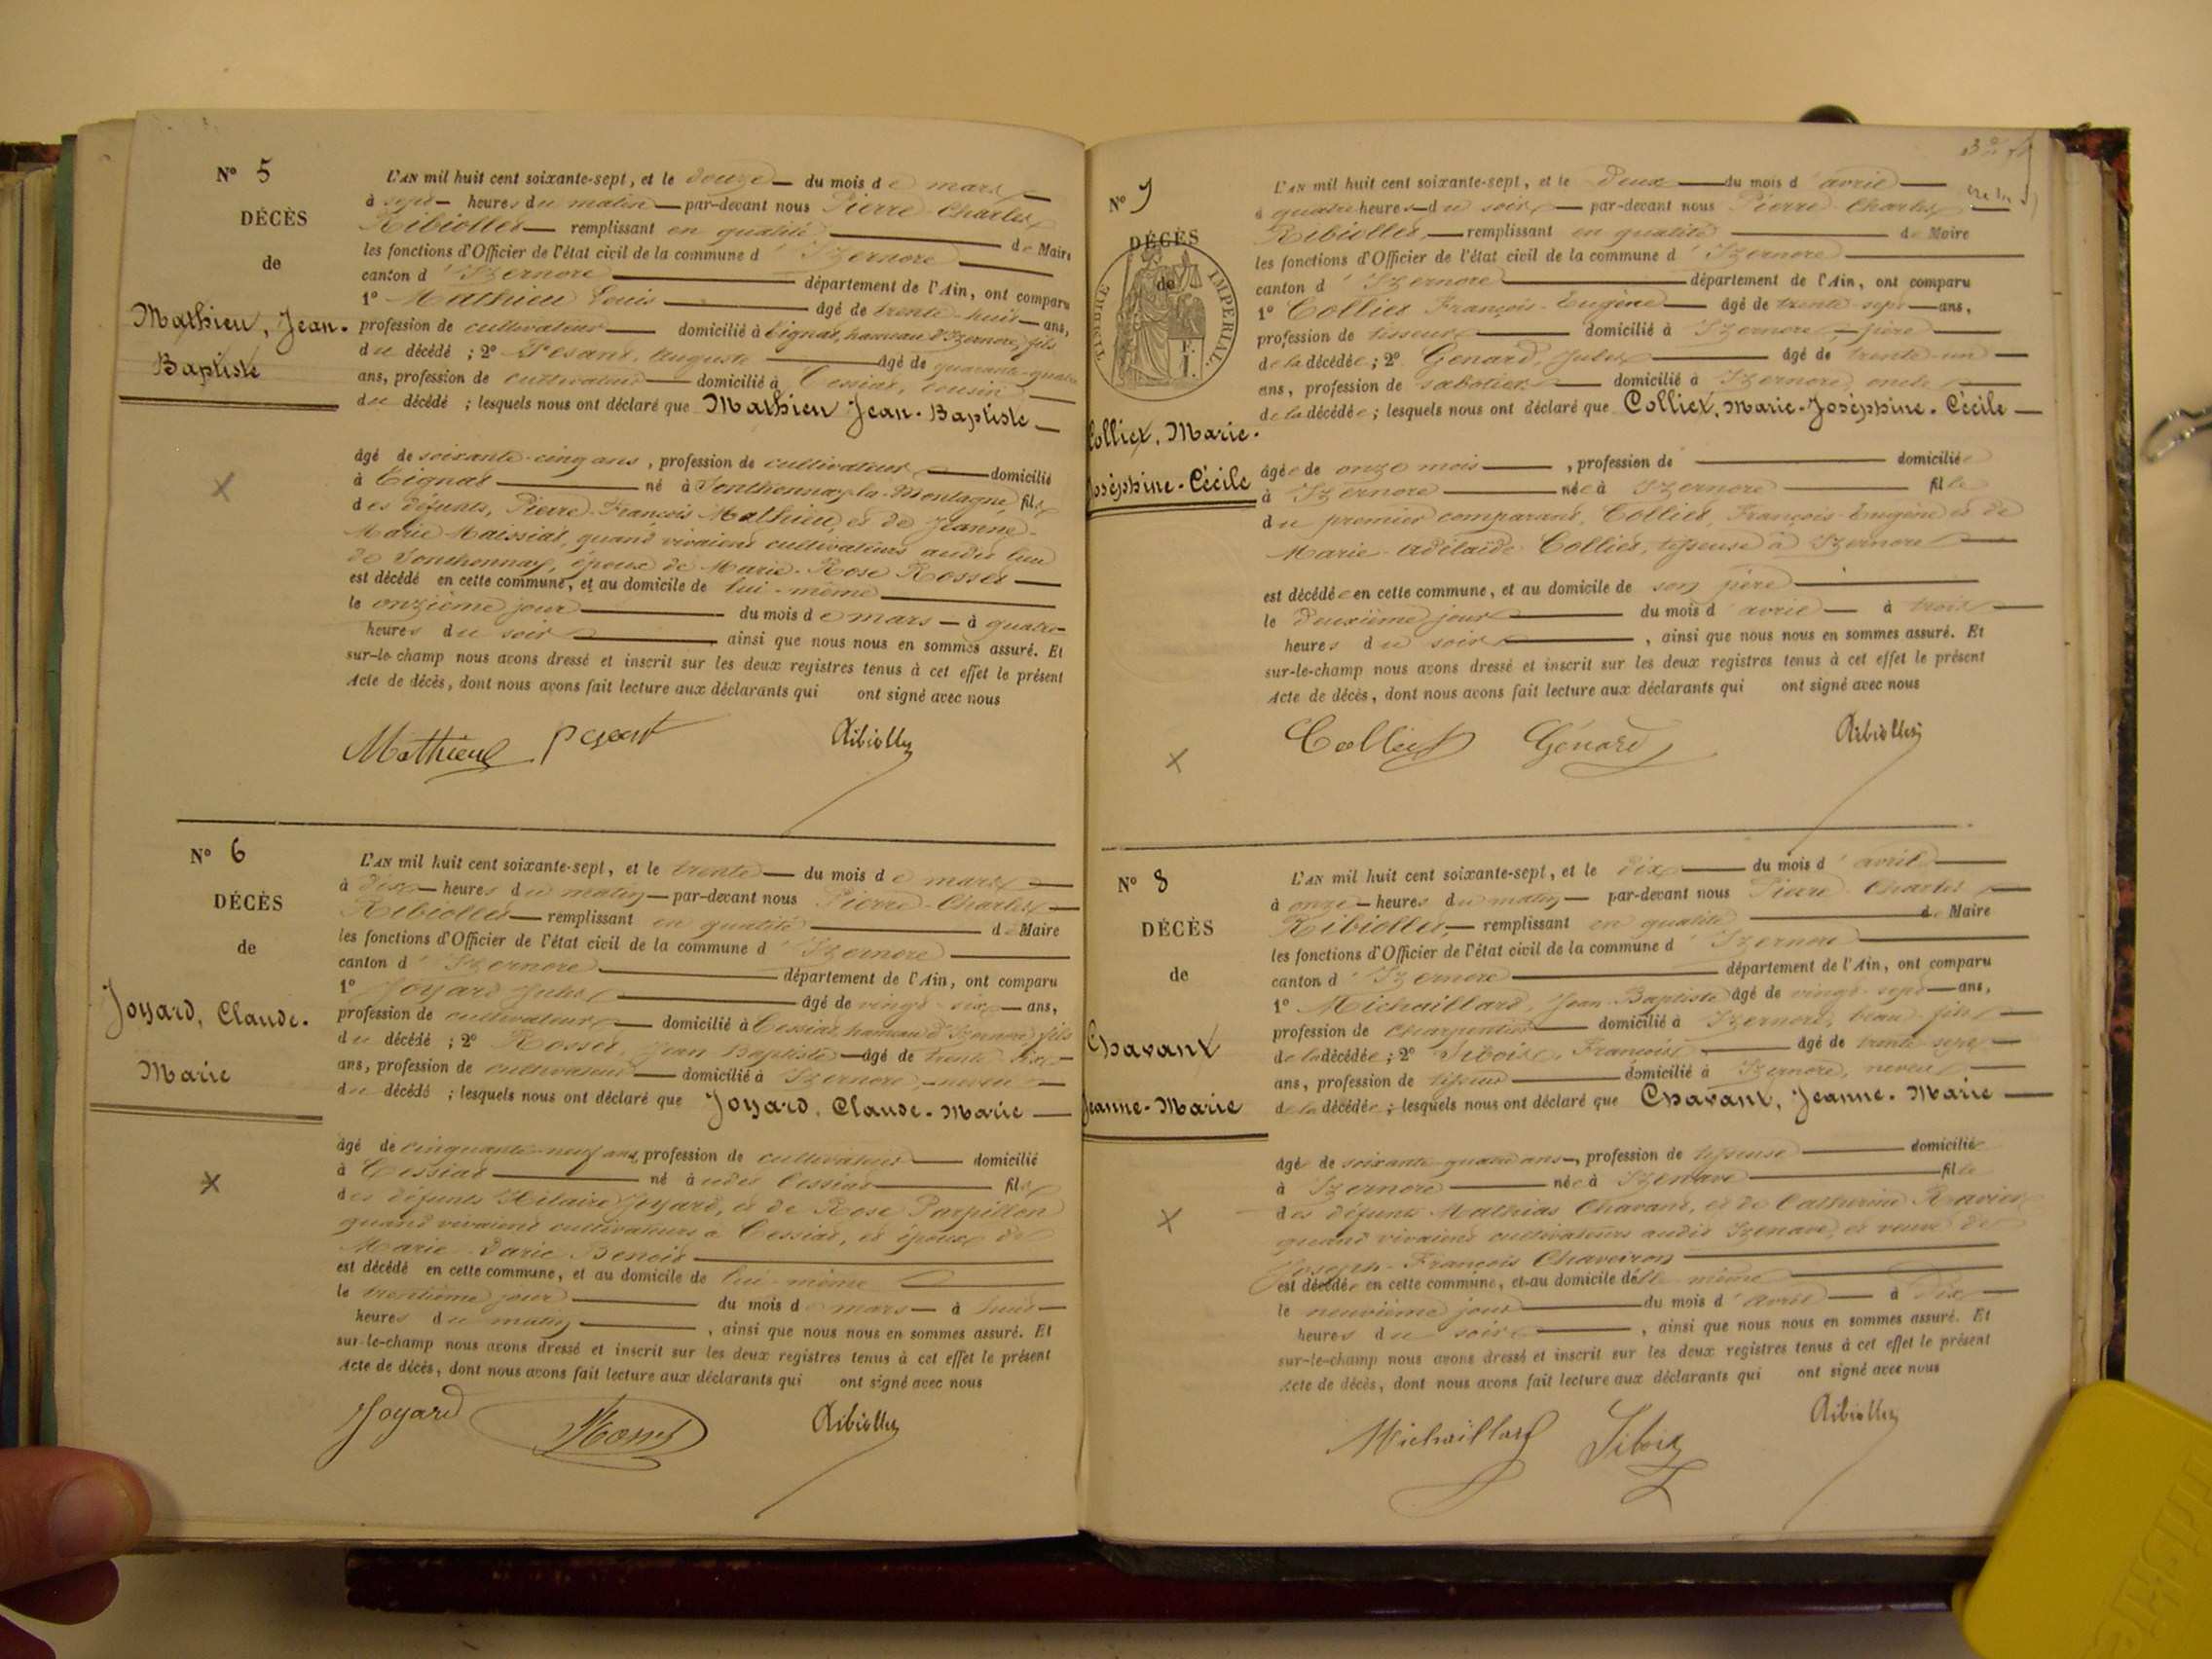 N° 5
DÉCÈS
de
Mathieu, Jean-
Baptiste
L'AN mil huit cent soixante-sept, et le douze du mois de mars
à sept heures du matin par-devant nous Pierre-Charles
Ribiollet remplissant en qualité de Maire
les fonctions d'Officier de l'état civil de la commune d'Izernore
canton d'Izernore département de l'Ain, ont comparu
1° Mathieu Louis âgé de trente-huit ans,
profession de cultivateur domicilié à Tignat, hameau d'Izernore, fils
du décédé ; 2° Pesant, Auguste âgé de quarante-quatre
ans, profession de cultivateur domicilié à Cessiat, cousin
du décédé ; lesquels nous ont déclaré que Mathieu Jean-Baptiste
âgé de soixante-cinq ans, profession de cultivateur domicilié
à Tignat né à Sonthonnax-la-Montagne, fils
des défunts, Pierre-François Mathieu, et de Jeanne-
Marie Maissiat, quand vivaient cultivateurs audit lieu
de Sonthonnax, époux de Marie-Rose Rosset
est décédé en cette commune, et au domicile de lui-même
le onzième jour du mois de mars à quatre
heures du soir ainsi que nous nous en sommes assuré. Et
sur-le-champ nous avons dressé et inscrit sur les deux registres tenus à cet effet le présent
Acte de décès, dont nous avons fait lecture aux déclarants qui ont signé avec nous
Mathieu Pesant Ribiollet
N° 6
DÉCÈS
de
Joyard, Claude-
Marie
L'AN mil huit cent soixante-sept, et le trente du mois de mars
à dix heures du matin par-devant nous Pierre-Charles
Ribiollet remplissant en qualité de Maire
les fonctions d'Officier de l'état civil de la commune d'Izernore
canton d'Izernore département de l'Ain, ont comparu
1° Joyard Jules âgé de vingt-six ans,
profession de cultivateur domicilié à Cessiat, hameau d'Izernore, fils
du décédé ; 2° Rosset, Jean Baptiste âgé de trente-six
ans, profession de cultivateur domicilié à Izernore, neveu
du décédé ; lesquels nous ont déclaré que Joyard, Claude-Marie
âgé de cinquante-neuf ans, profession de cultivateur domicilié
à Cessiat né audit Cessiat fils
des défunts Hilaire Joyard, et de Rose Parpillon
quand vivaient cultivateurs à Cessiat, et époux de
Marie Benoit
est décédé en cette commune, et au domicile de lui-même
le trentième jour du mois de mars à huit
heures du matin, ainsi que nous nous en sommes assuré. Et
sur-le-champ nous avons dressé et inscrit sur les deux registres tenus à cet effet le présent
Acte de décès, dont nous avons fait lecture aux déclarants qui ont signé avec nous
Joyard Rosset Ribiollet
N° 7
DÉCÈS
de
TIMBRE IMPÉRIAL
Colliet, Marie-
Joséphine-Cécile
L'AN mil huit cent soixante-sept, et le deux du mois d'avril
à quatre heures du soir par-devant nous Pierre-Charles
Ribiollet, remplissant en qualité de Maire
les fonctions d'Officier de l'état civil de la commune d'Izernore
canton d'Izernore département de l'Ain, ont comparu
1° Colliet François-Eugène âgé de trente-sept ans,
profession de tisseur domicilié à Izernore, père
de la décédée ; 2° Genard, Jules âgé de trente-un
ans, profession de sabotier domicilié à Izernore, oncle
de la décédée ; lesquels nous ont déclaré que Colliet, Marie-Joséphine-Cécile
âgée de onze mois, profession de domiciliée
à Izernore née à Izernore fille
du premier comparant, Colliet, François-Eugène et de
Marie-Adélaïde Colliet, tisseuse à Izernore
est décédée en cette commune, et au domicile de son père
le deuxième jour du mois d'avril à trois
heures du soir, ainsi que nous nous en sommes assuré. Et
sur-le-champ nous avons dressé et inscrit sur les deux registres tenus à cet effet le présent
Acte de décès, dont nous avons fait lecture aux déclarants qui ont signé avec nous
Colliet Génard Ribiollet
N° 8
DÉCÈS
de
Chavant
Jeanne-Marie
L'AN mil huit cent soixante-sept, et le dix du mois d'avril
à onze heures du matin par-devant nous Pierre-Charles
Ribiollet, remplissant en qualité de Maire
les fonctions d'Officier de l'état civil de la commune d'Izernore
canton d'Izernore département de l'Ain, ont comparu
1° Michaillard, Jean-Baptiste âgé de vingt-sept ans,
profession de charpentier domicilié à Izernore, beau-fils
de la décédée ; 2° Siboix, François âgé de trente-sept
ans, profession de tisseur domicilié à Izernore, neveu
de la décédée ; lesquels nous ont déclaré que Chavant, Jeanne-Marie
âgée de soixante-quatre ans, profession de tisseuse domiciliée
à Izernore née à Izenave fille
des défunts Mathias Chavant, et de Catherine Ravier
quand vivaient cultivateurs audit Izenave, et veuve de
Joseph-François Chaveiron
est décédée en cette commune, et au domicile d'elle-même
le neuvième jour du mois d'avril à dix
heures du soir, ainsi que nous nous en sommes assuré. Et
sur-le-champ nous avons dressé et inscrit sur les deux registres tenus à cet effet le présent
Acte de décès, dont nous avons fait lecture aux déclarants qui ont signé avec nous
Michaillard Siboix Ribiollet